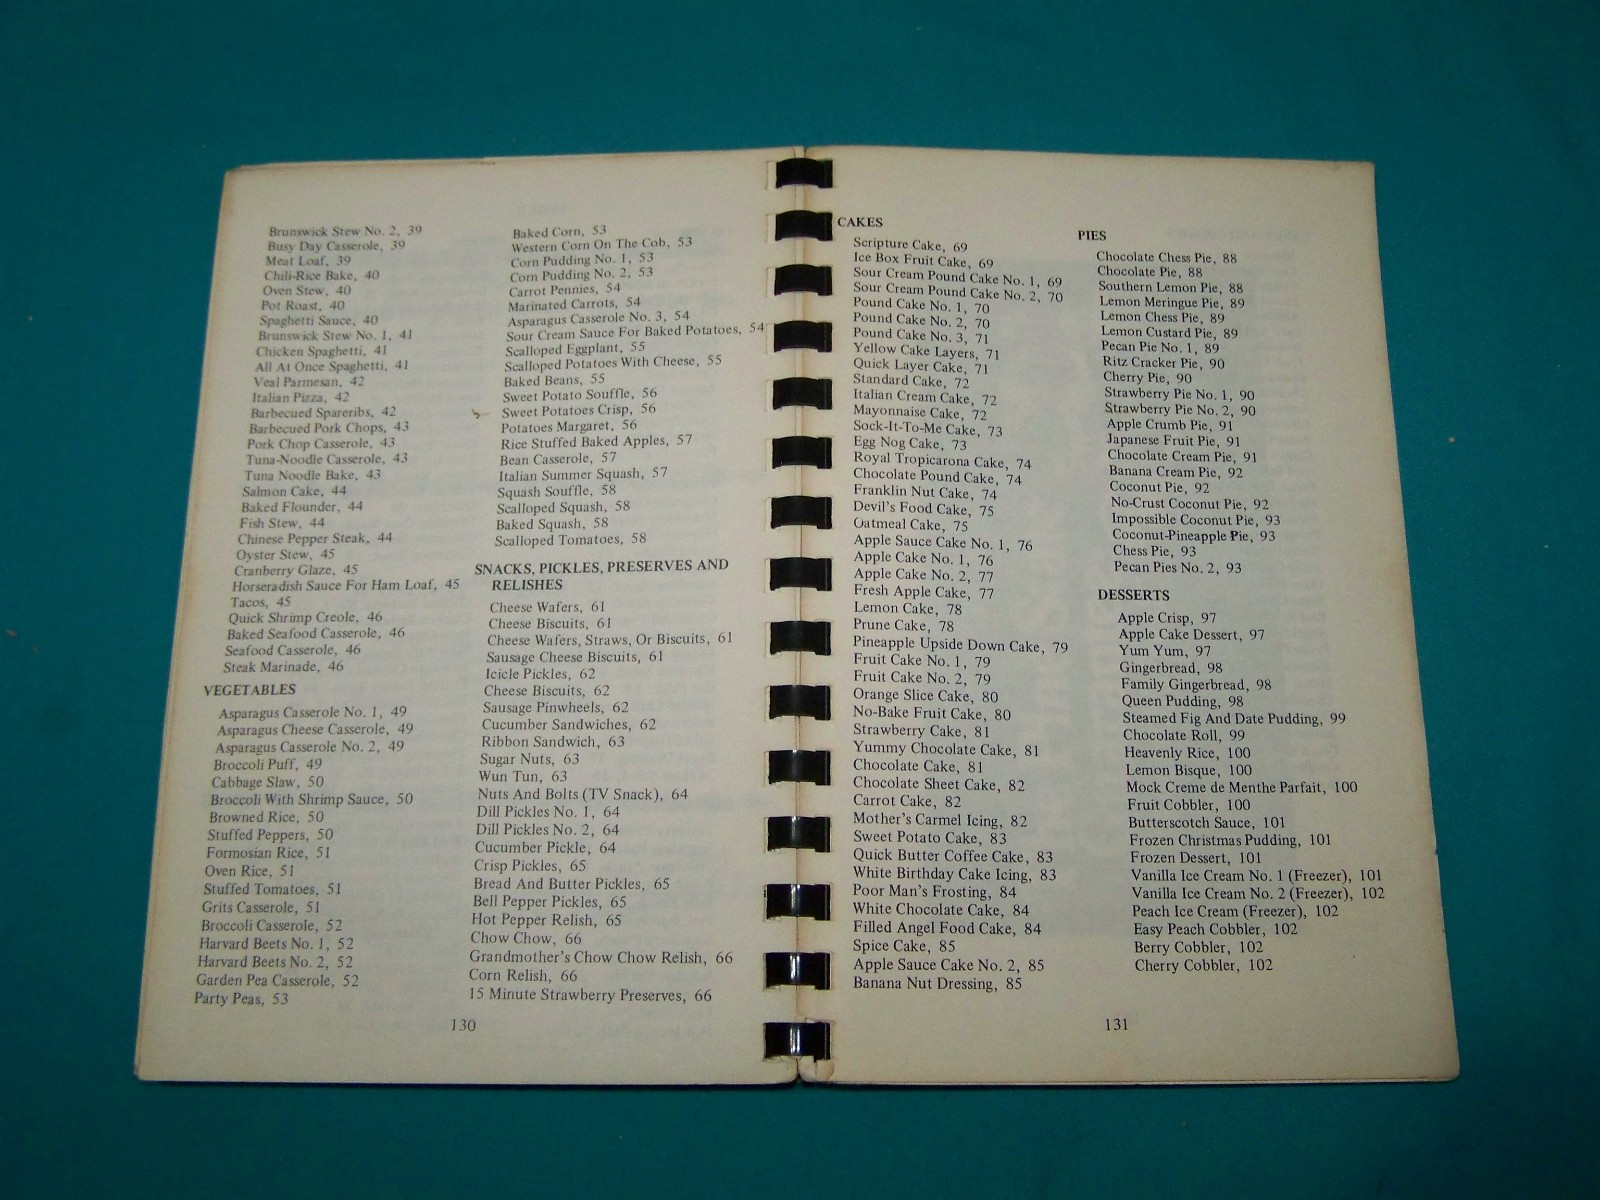 Brunswick Stew No. 2, 39
Busy Day Casserole, 39
Meat Loaf, 39
Chili-Rice Bake, 40
Oven Stew, 40
Pot Roast, 40
Spaghetti Sauce, 40
Brunswick Stew No. 1, 41
Chicken Spaghetti, 41
All At Once Spaghetti, 41
Veal Parmesan, 42
Italian Pizza, 42
Barbecued Spareribs, 42
Barbecued Pork Chops, 43
Pork Chop Casserole, 43
Tuna-Noodle Casserole, 43
Tuna Noodle Bake, 43
Salmon Cake, 44
Baked Flounder, 44
Fish Stew, 44
Chinese Pepper Steak, 44
Oyster Stew, 45
Cranberry Glaze, 45
Horseradish Sauce For Ham Loaf, 45
Tacos, 45
Quick Shrimp Creole, 46
Baked Seafood Casserole, 46
Seafood Casserole, 46
Steak Marinade, 46
VEGETABLES
Asparagus Casserole No. 1, 49
Asparagus Cheese Casserole, 49
Asparagus Casserole No. 2, 49
Broccoli Puff, 49
Cabbage Slaw, 50
Broccoli With Shrimp Sauce, 50
Browned Rice, 50
Stuffed Peppers, 50
Formosian Rice, 51
Oven Rice, 51
Stuffed Tomatoes, 51
Grits Casserole, 51
Broccoli Casserole, 52
Harvard Beets No. 1, 52
Harvard Beets No. 2, 52
Garden Pea Casserole, 52
Party Peas, 53
Baked Corn, 53
Western Corn On The Cob, 53
Corn Pudding No. 1, 53
Corn Pudding No. 2, 53
Carrot Pennies, 54
Marinated Carrots, 54
Asparagus Casserole No. 3, 54
Sour Cream Sauce For Baked Potatoes, 54
Scalloped Eggplant, 55
Scalloped Potatoes With Cheese, 55
Baked Beans, 55
Sweet Potato Souffle, 56
Sweet Potatoes Crisp, 56
Potatoes Margaret, 56
Rice Stuffed Baked Apples, 57
Bean Casserole, 57
Italian Summer Squash, 57
Squash Souffle, 58
Scalloped Squash, 58
Baked Squash, 58
Scalloped Tomatoes, 58
SNACKS, PICKLES, PRESERVES AND
RELISHES
Cheese Wafers, 61
Cheese Biscuits, 61
Cheese Wafers, Straws, Or Biscuits, 61
Sausage Cheese Biscuits, 61
Icicle Pickles, 62
Cheese Biscuits, 62
Sausage Pinwheels, 62
Cucumber Sandwiches, 62
Ribbon Sandwich, 63
Sugar Nuts, 63
Wun Tun, 63
Nuts And Bolts (TV Snack), 64
Dill Pickles No. 1, 64
Dill Pickles No. 2, 64
Cucumber Pickle, 64
Crisp Pickles, 65
Bread And Butter Pickles, 65
Bell Pepper Pickles, 65
Hot Pepper Relish, 65
Chow Chow, 66
Grandmother's Chow Chow Relish, 66
Corn Relish, 66
15 Minute Strawberry Preserves, 66
130
CAKES
Scripture Cake, 69
Ice Box Fruit Cake, 69
Sour Cream Pound Cake No. 1, 69
Sour Cream Pound Cake No. 2, 70
Pound Cake No. 1, 70
Pound Cake No. 2, 70
Pound Cake No. 3, 71
Yellow Cake Layers, 71
Quick Layer Cake, 71
Standard Cake, 72
Italian Cream Cake, 72
Mayonnaise Cake, 72
Sock-It-To-Me Cake, 73
Egg Nog Cake, 73
Royal Tropicarona Cake, 74
Chocolate Pound Cake, 74
Franklin Nut Cake, 74
Devil's Food Cake, 75
Oatmeal Cake, 75
Apple Sauce Cake No. 1, 76
Apple Cake No. 1, 76
Apple Cake No. 2, 77
Fresh Apple Cake, 77
Lemon Cake, 78
Prune Cake, 78
Pineapple Upside Down Cake, 79
Fruit Cake No. 1, 79
Fruit Cake No. 2, 79
Orange Slice Cake, 80
No-Bake Fruit Cake, 80
Strawberry Cake, 81
Yummy Chocolate Cake, 81
Chocolate Cake, 81
Chocolate Sheet Cake, 82
Carrot Cake, 82
Mother's Carmel Icing, 82
Sweet Potato Cake, 83
Quick Butter Coffee Cake, 83
White Birthday Cake Icing, 83
Poor Man's Frosting, 84
White Chocolate Cake, 84
Filled Angel Food Cake, 84
Spice Cake, 85
Apple Sauce Cake No. 2, 85
Banana Nut Dressing, 85
PIES
Chocolate Chess Pie, 88
Chocolate Pie, 88
Southern Lemon Pie, 88
Lemon Meringue Pie, 89
Lemon Chess Pie, 89
Lemon Custard Pie, 89
Pecan Pie No. 1, 89
Ritz Cracker Pie, 90
Cherry Pie, 90
Strawberry Pie No. 1, 90
Strawberry Pie No. 2, 90
Apple Crumb Pie, 91
Japanese Fruit Pie, 91
Chocolate Cream Pie, 91
Banana Cream Pie, 92
Coconut Pie, 92
No-Crust Coconut Pie, 92
Impossible Coconut Pie, 93
Coconut-Pineapple Pie, 93
Chess Pie, 93
Pecan Pies No. 2, 93
DESSERTS
Apple Crisp, 97
Apple Cake Dessert, 97
Yum Yum, 97
Gingerbread, 98
Family Gingerbread, 98
Queen Pudding, 98
Steamed Fig And Date Pudding, 99
Chocolate Roll, 99
Heavenly Rice, 100
Lemon Bisque, 100
Mock Creme de Menthe Parfait, 100
Fruit Cobbler, 100
Butterscotch Sauce, 101
Frozen Christmas Pudding, 101
Frozen Dessert, 101
Vanilla Ice Cream No. 1 (Freezer), 101
Vanilla Ice Cream No. 2 (Freezer), 102
Peach Ice Cream (Freezer), 102
Easy Peach Cobbler, 102
Berry Cobbler, 102
Cherry Cobbler, 102
131